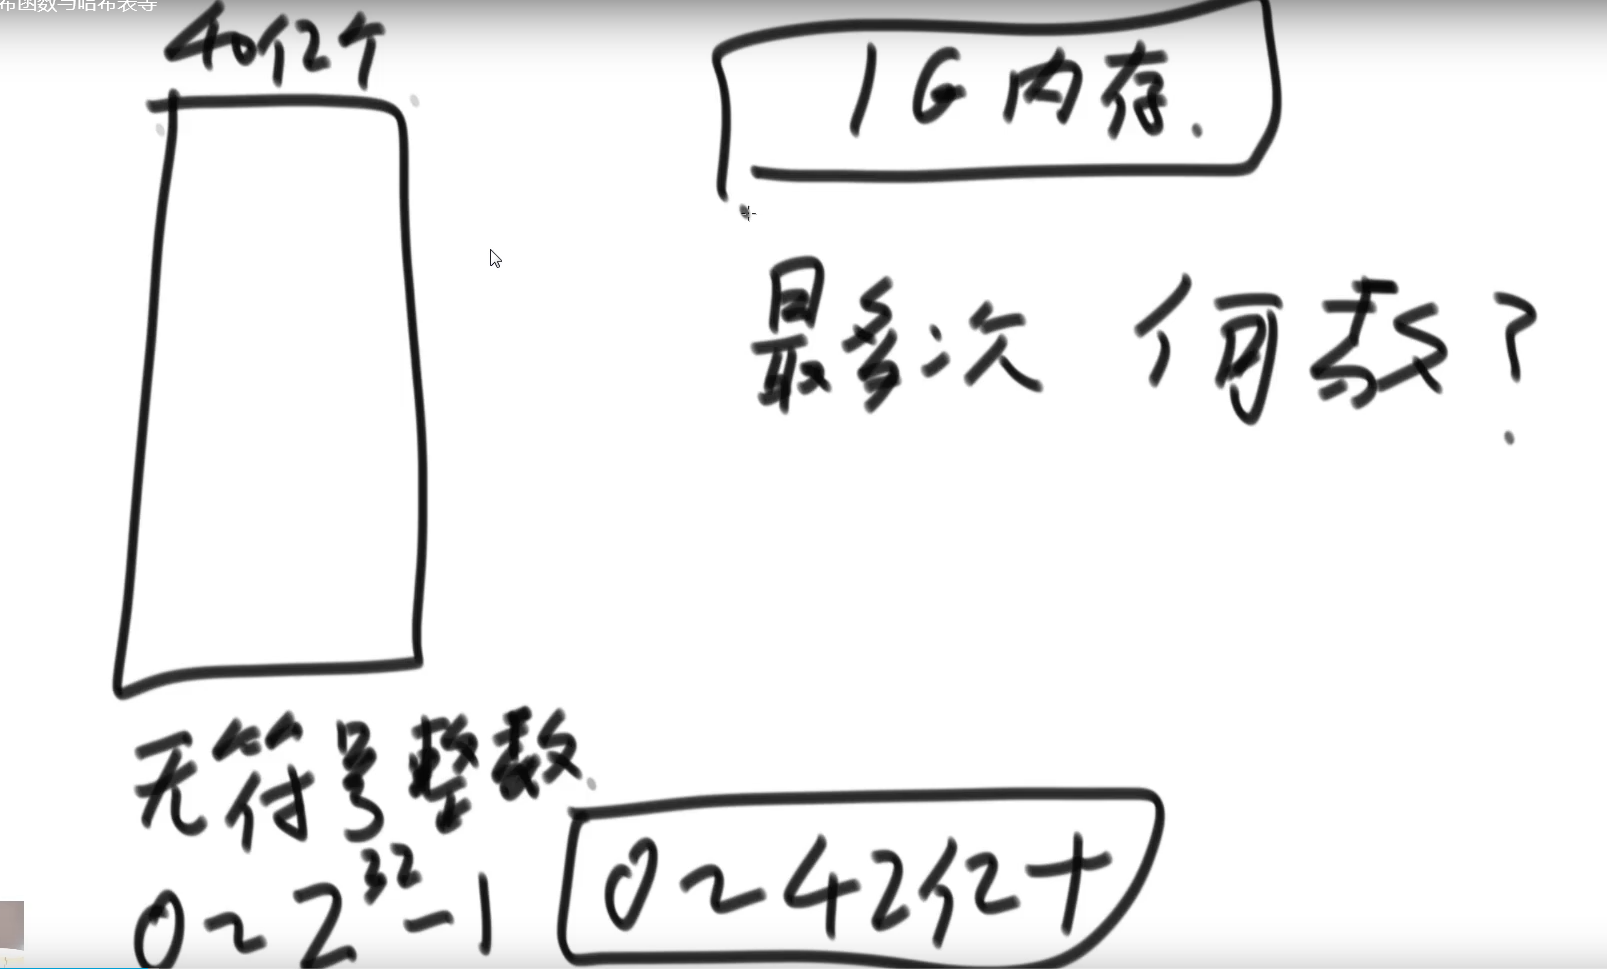 布函数与哈布表等
40亿个
1G内存.
最多次 何数?
无符号整数
0~2³²-1
0~42亿+